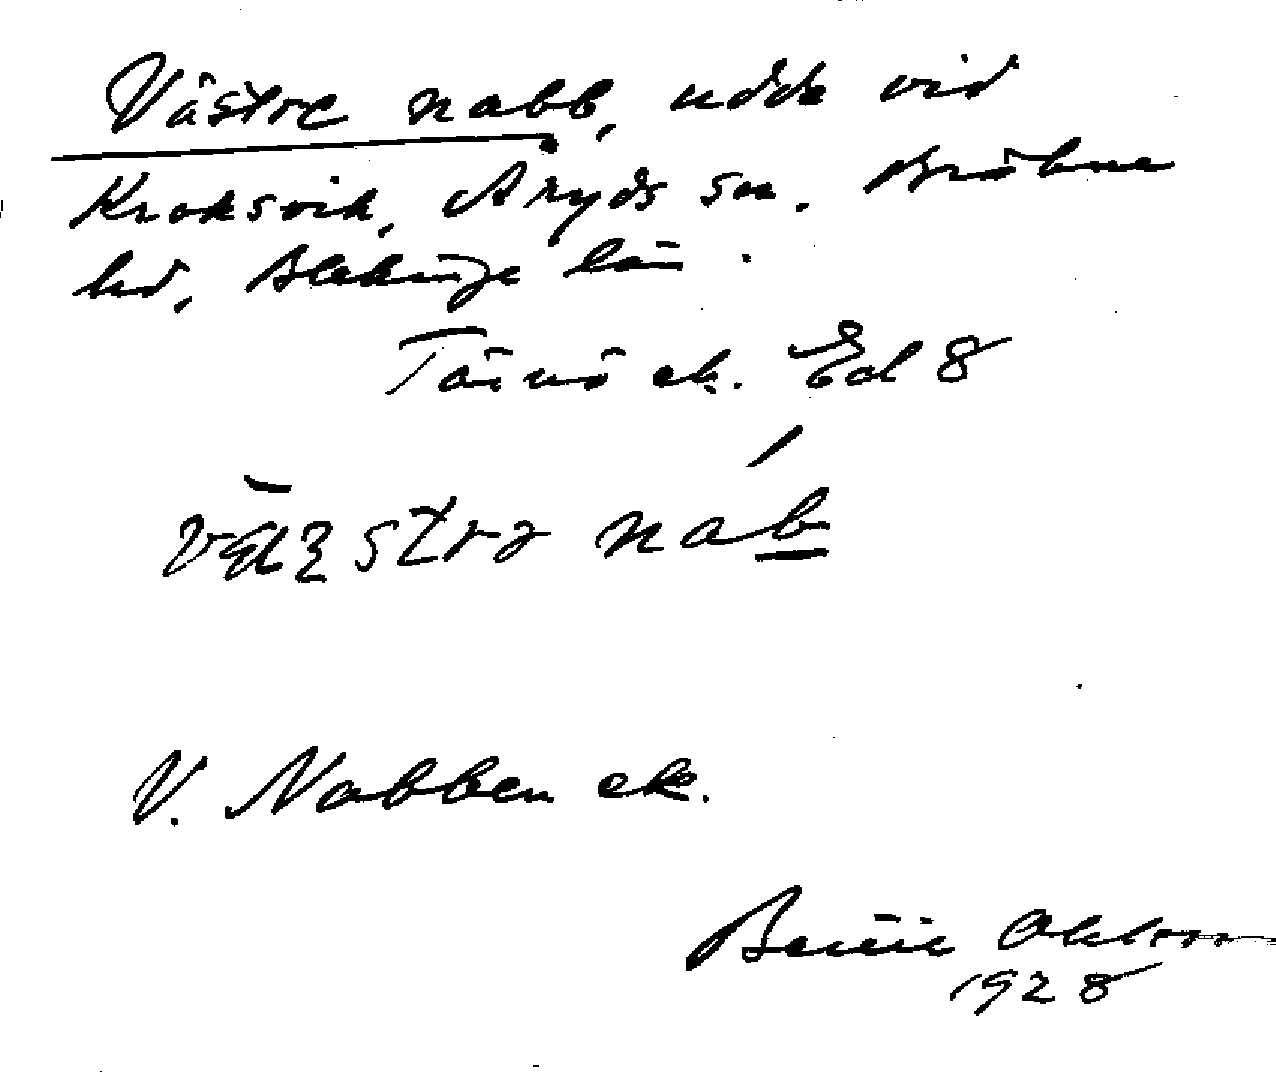 Västre nabb, udde vid
Kroksvik, Åryds sn. Bräkne
hd, Blekinge län.
Tärnö ek. Ed 8
västrə nab
V. Nabben ek.
Bertil Ohlson
1928